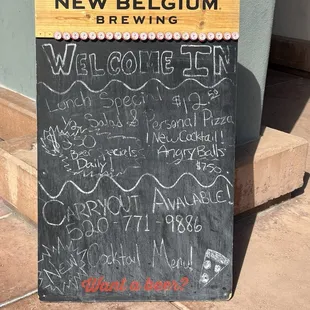 NEW BELGIUM
BREWING
WELCOME IN
Lunch Special $12
1/2 Salad & Personal Pizza
New Cocktail!
Angry Balls
Daily!
$7.50
CARRYOUT AVAILABLE!
520-771-9886
New Cocktail Menu!
Want a beer?